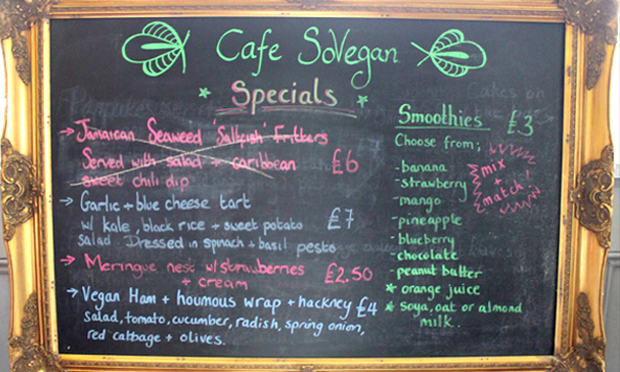 Cafe SoVegan
Specials
→ Jamaican Seaweed 'Saltfish' Fritters
Served with salad + caribbean £6
sweet chili dip
→ Garlic + blue cheese tart
w/ kale, black rice + sweet potato £7
salad Dressed in spinach + basil pesto
→ Meringue nest w/strawberries £2.50
+ cream
→ Vegan Ham + houmous wrap + hackney £4
salad, tomato, cucumber, radish, spring onion,
red cabbage + olives.
Smoothies £3
Choose from;
- banana
- strawberry
- mango
- pineapple
- blueberry
- chocolate
- peanut butter
* orange juice
* soya, oat or almond
milk.
mix
+
match!